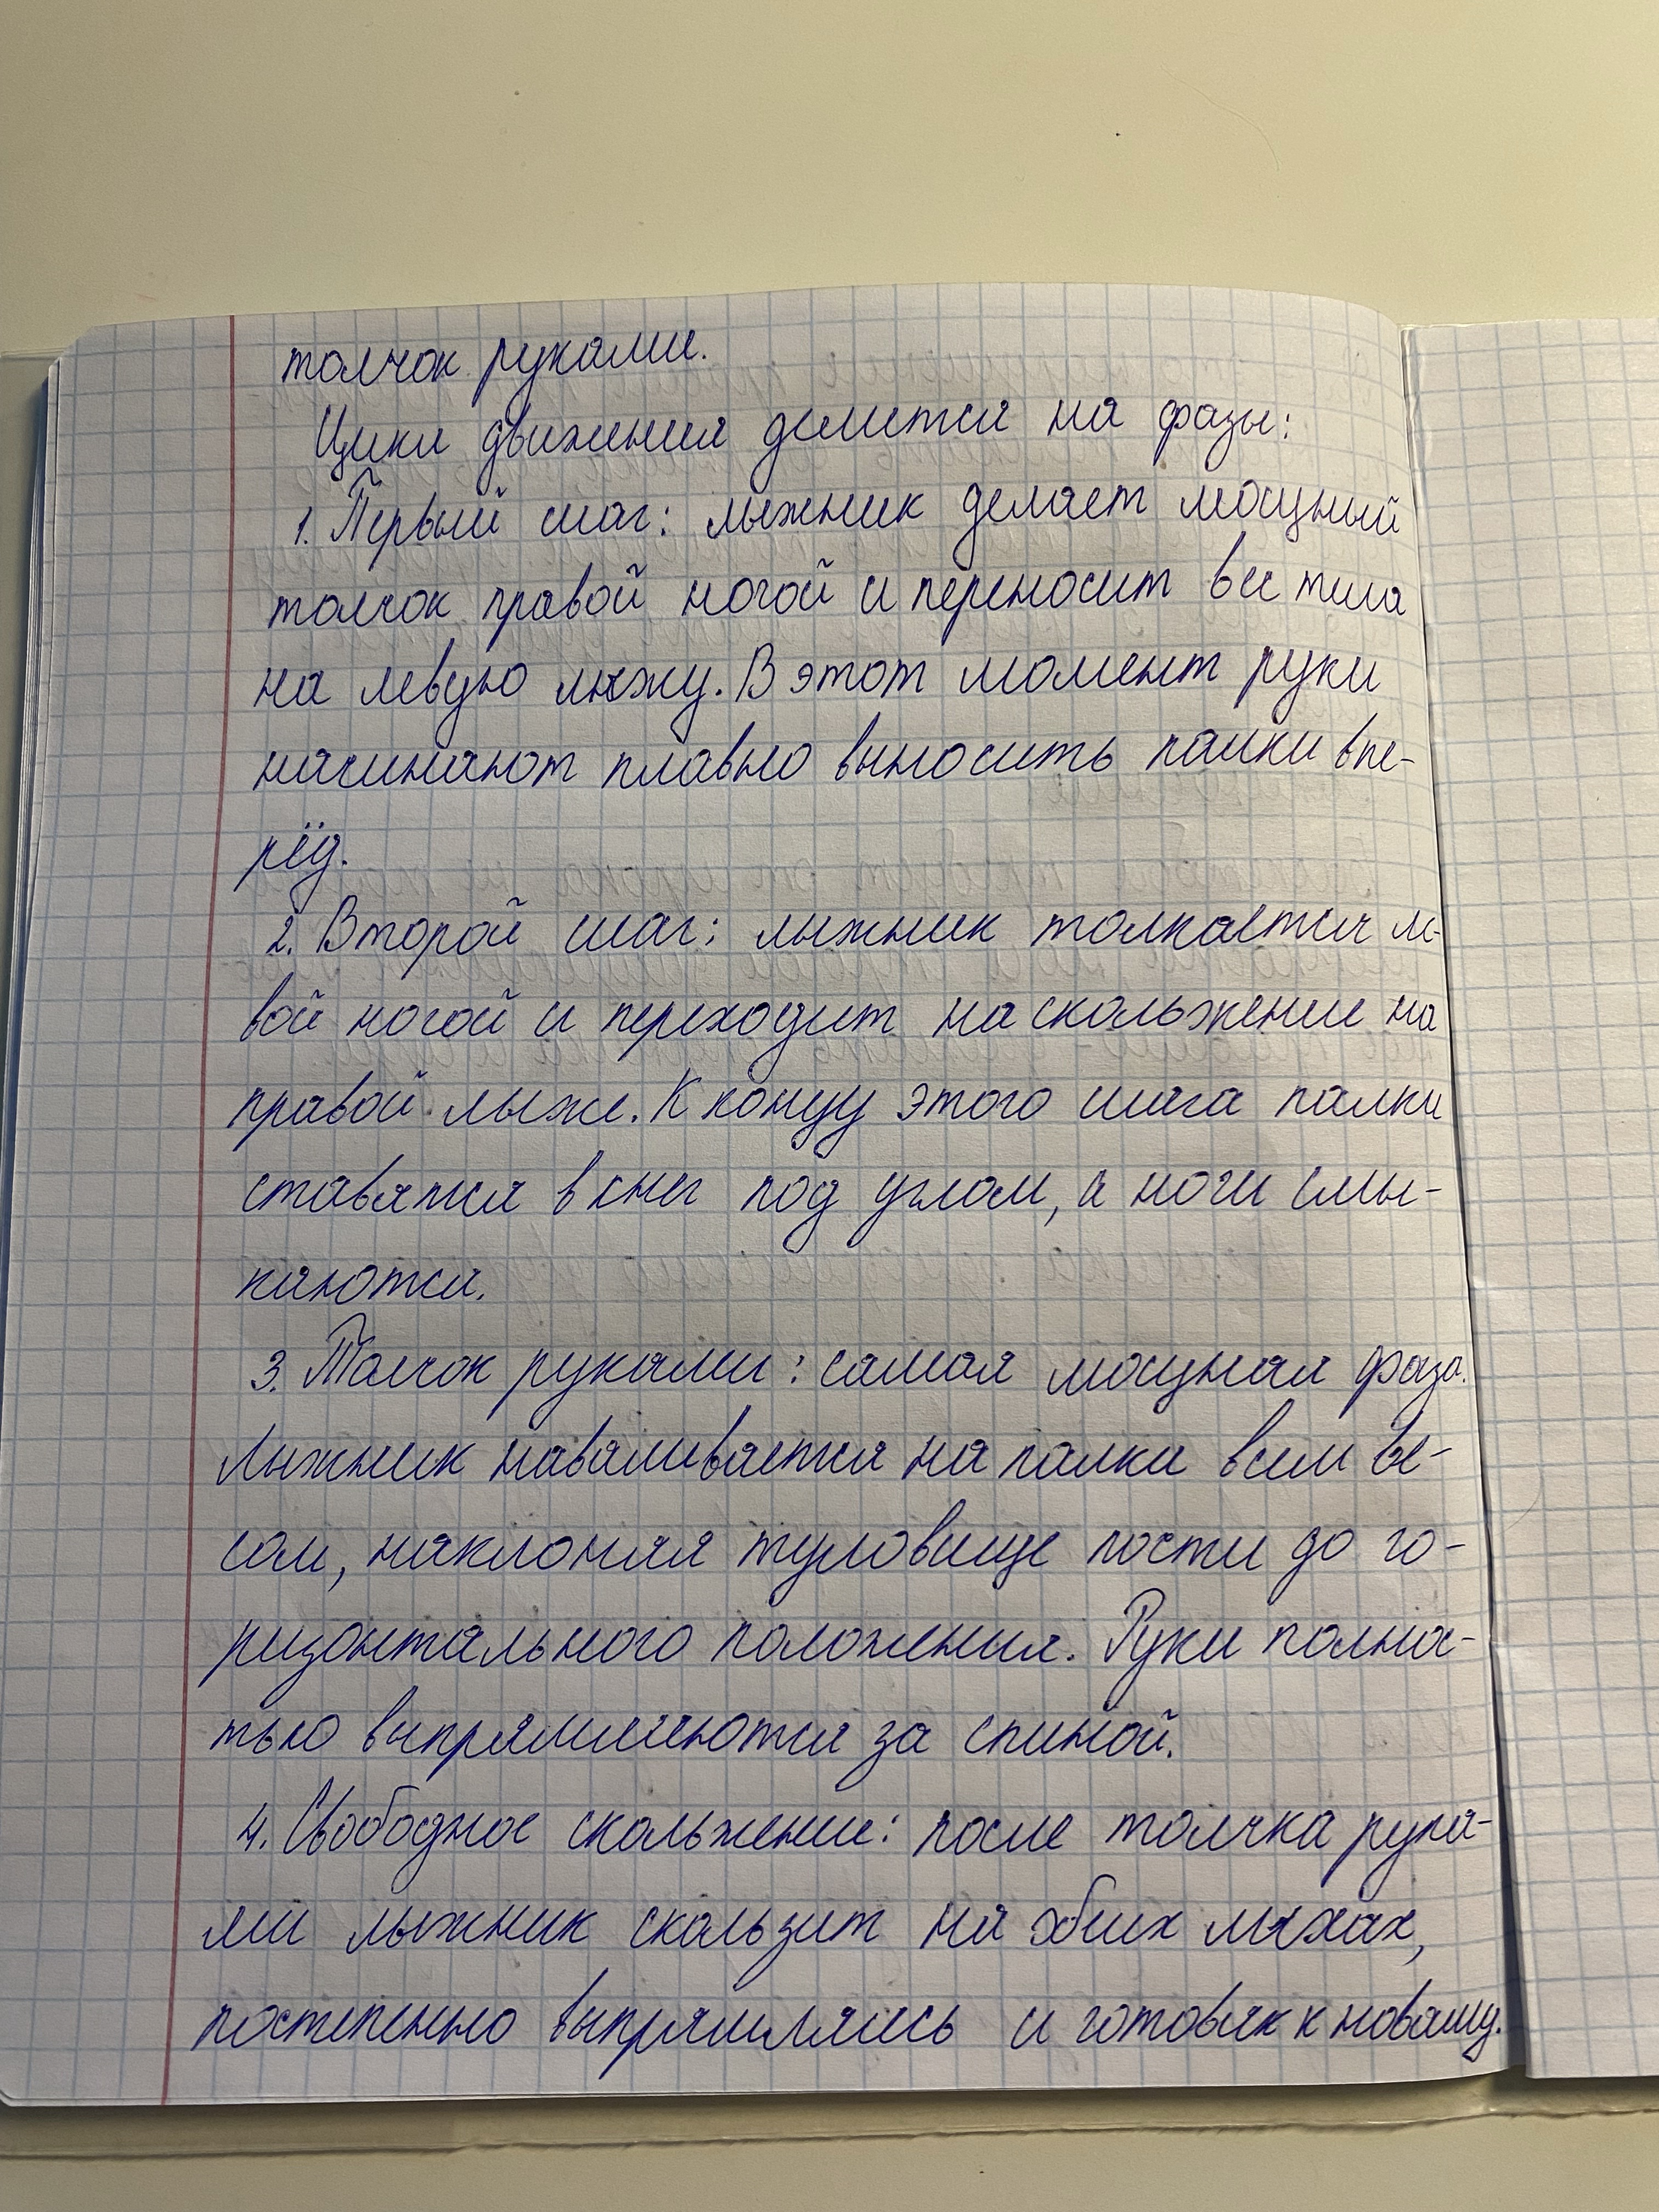 толчок руками.
Цикл движения делится на фазы:
1. Первый шаг: лыжник делает мощный
толчок правой ногой и переносит вес тела
на левую лыжу. В этот момент руки
начинают плавно выносить палки впе-
рёд.
2. Второй шаг: лыжник толкается ле-
вой ногой и переходит на скольжение на
правой лыже. К концу этого шага палки
ставятся в снег под углом, а ноги смы-
каются.
3. Толчок руками: самая мощная фаза.
Лыжник наваливается на палки всем ве-
сом, наклоняя туловище почти до го-
ризонтального положения. Руки полнос-
тью выпрямляются за спиной.
4. Свободное скольжение: после толчка рука-
ми лыжник скользит на обеих лыжах,
постепенно выпрямляясь и готовясь к новому.